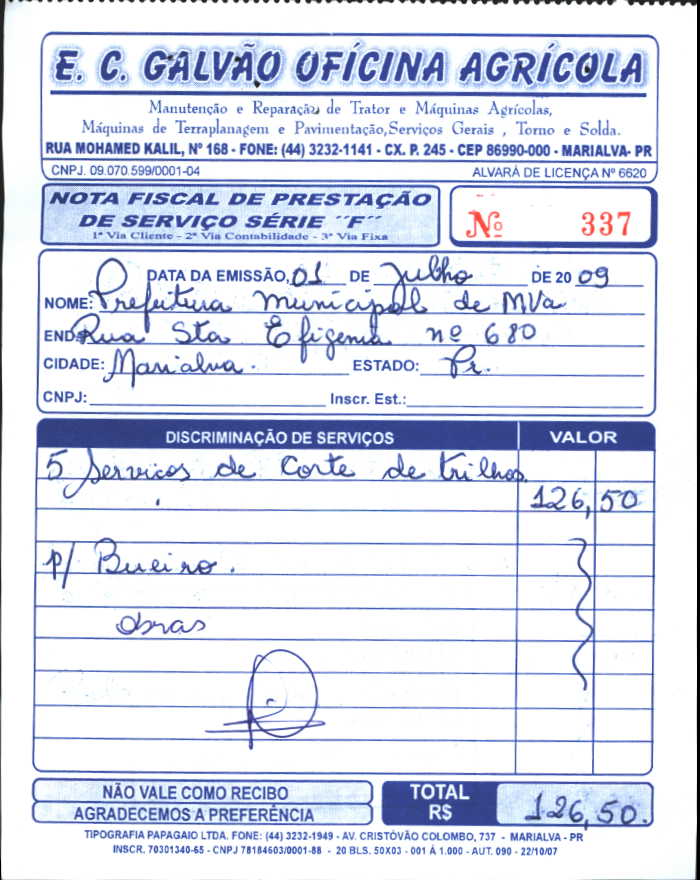 E. C. GALVÃO OFÍCINA AGRÍCOLA
Manutenção e Reparação de Trator e Máquinas Agrícolas,
Máquinas de Terraplanagem e Pavimentação,Serviços Gerais , Torno e Solda.
RUA MOHAMED KALIL, Nº 168 - FONE: (44) 3232-1141 - CX. P. 245 - CEP 86990-000 - MARIALVA- PR
CNPJ. 09.070.599/0001-04 ALVARÁ DE LICENÇA Nº 6620
NOTA FISCAL DE PRESTAÇÃO
DE SERVIÇO SÉRIE ´´F´´
1ª Via Cliente - 2ª Via Contabilidade - 3ª Via Fixa
Nº 337
DATA DA EMISSÃO, 01 DE Julho DE 20 09
NOME: Prefeitura municipal de MVa
END: Rua Sta Efigenia nº 680
CIDADE: Marialva. ESTADO: Pr.
CNPJ: Inscr. Est.:
DISCRIMINAÇÃO DE SERVIÇOS VALOR
5 Servicos de Corte de trilhos.
126,50
p/ Bueiro.
obras
NÃO VALE COMO RECIBO
AGRADECEMOS A PREFERÊNCIA
TOTAL
R$ 126,50.
TIPOGRAFIA PAPAGAIO LTDA. FONE: (44) 3232-1949 - AV. CRISTÓVÃO COLOMBO, 737 - MARIALVA - PR
INSCR. 70301340-65 - CNPJ 78184603/0001-88 - 20 BLS. 50X03 - 001 À 1.000 - AUT. 090 - 22/10/07